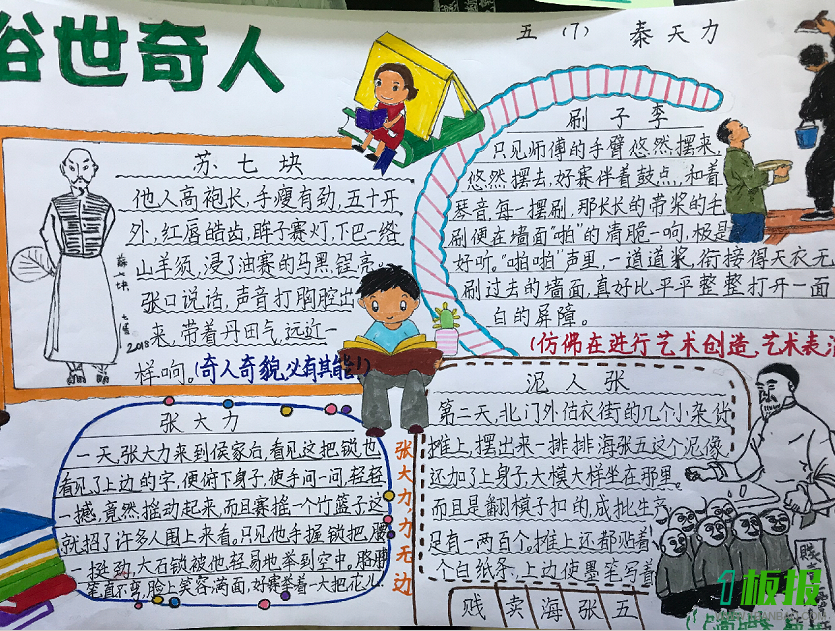 俗世奇人
五(7) 秦天力
苏七块
他人高袍长,手瘦有劲,五十开
外,红唇皓齿,眸子赛灯,下巴一绺
山羊须,浸了油赛的乌黑锃亮。
张口说话,声音打胸腔出
来,带着丹田气,远近一
样响。(奇人奇貌,必有其能!)
苏七块
2018
刷子李
只见师傅的手臂悠然摆来,
悠然摆去,好赛伴着鼓点,和着
琴音,每一摆刷,那长长的带浆的毛
刷便在墙面“啪”的清脆一响,极是
好听。“啪啪”声里,一道道浆,衔接得天衣无
刷过去的墙面,真好比平平整整打开一面
白的屏障。
(仿佛在进行艺术创造,艺术表演
张大力
一天,张大力来到侯家后,看见这把锁,也
看见了上边的字,便俯下身子,使手问一问,轻轻
一撼,竟然摇动起来,而且赛摇一个竹篮子,这
就招了许多人围上来看。只见他手握锁把,腰
一挺劲,大石锁被他轻易地举到空中。胳膊
笔直不弯,脸上笑容满面,好赛举着一大把花儿
张大力,力无边
泥人张
第二天,北门外估衣街的几个小杂货
摊上,摆出来一排排海张五这个泥像,
还加了上身子,大模大样坐在那里。
而且是翻模子扣的,成批生产,
足有一两百个。摊上还都贴着
个白纸条,上边使墨笔写着
贱卖海张五
贱
板报